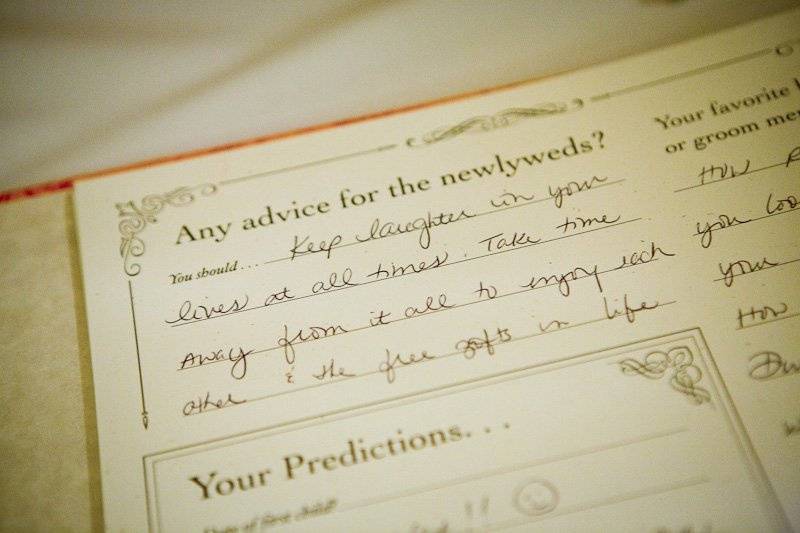 Any advice for the newlyweds?
You should... Keep laughter in your
lives at all times. Take time
away from it all to enjoy each
other & the free gifts in life
Your Predictions...
Date of first child?
!!
Your favorite
or groom
How
you
your
How